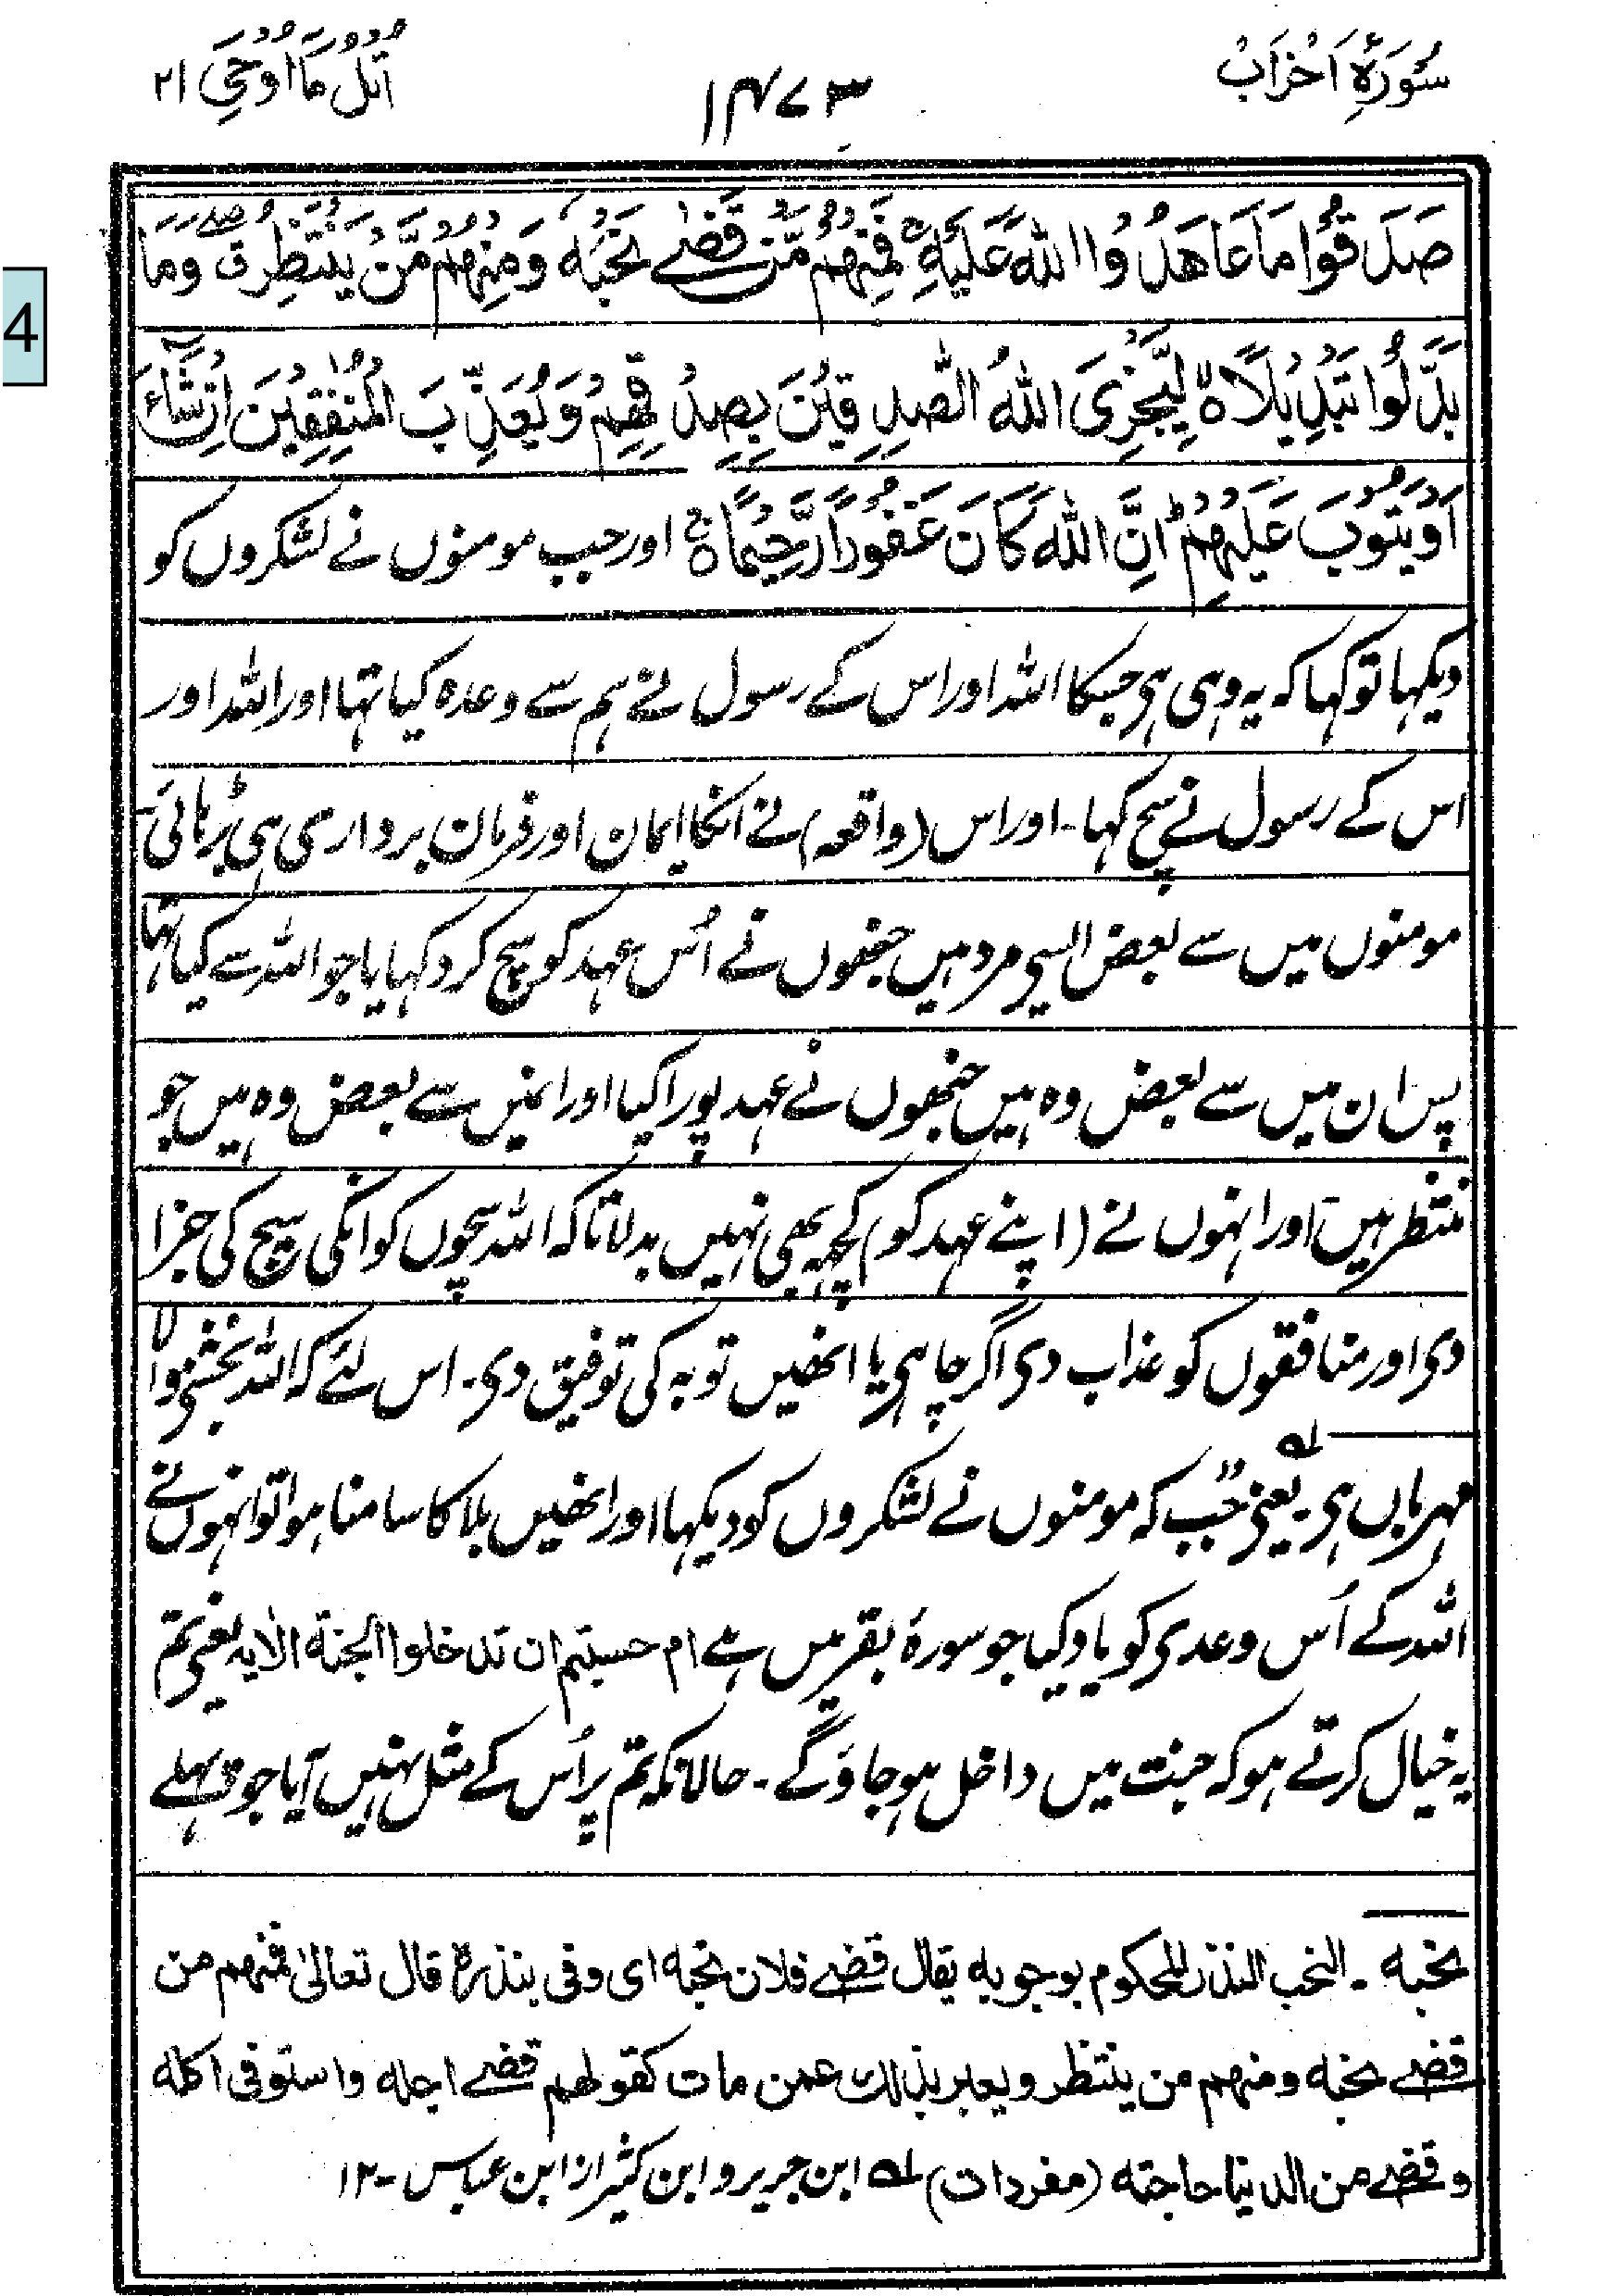 سُوْرَۃِ اَحْزَابْ
۱۴۷۳
اُتْلُ مَا اُوْحِيَ ۲۱
صَدَقُوْا مَا عَاهَدُوا اللهَ عَلَيْهِ ۚ فَمِنْهُمْ مَّنْ قَضٰے نَحْبَهٗ وَمِنْهُمْ مَّنْ يَّنْتَظِرُ ۖ وَمَا
بَدَّلُوْا تَبْدِيْلًا ۙ لِّيَجْزِيَ اللهُ الصّٰدِقِيْنَ بِصِدْقِهِمْ وَيُعَذِّبَ الْمُنٰفِقِيْنَ اِنْ شَآءَ
اَوْ يَتُوْبَ عَلَيْهِمْ ۭ اِنَّ اللهَ كَانَ غَفُوْرًا رَّحِيْمًا ۚ اور جب مومنوں نے لشکروں کو
دیکہا تو کہا کہ یہ وہی ہی جسکا اللہ اور اس کے رسول نے ہم سے وعدہ کیا تہا اور اللہ اور
اس کے رسول نے سچ کہا۔ اور اس (واقعہ) نے انکا ایمان اور فرمان برداری ہی بڑہائی
مومنوں میں سے بعض ایسی مرد ہیں جنھوں نے اُس عہد کو سچ کر دکہایا جو اللہ سے کیا تہا
پس ان میں سے بعض وہ ہیں جنھوں نے عہد پورا کیا اور انمیں سے بعض وہ ہیں جو
منتظر ہیں اور انہوں نے (اپنے عہد کو) کچہ بھی نہیں بدلا تاکہ اللہ سچوں کو انکی سچ کی جزا
دی اور منافقوں کو عذاب دی اگر چاہی یا انھیں توبہ کی توفیق دی۔ اس لئے کہ اللہ بخشنی والا
مہرباں ہی۔ یعنی جب کہ مومنوں نے لشکروں کو دیکہا اور انھیں بلا کا سامنا ہوا تو انہوں نے
اللہ کے اُس وعدی کو یاد کیا جو سورۂ بقر میں ہے ام حسبتم ان تدخلوا الجنة الایه یعنی تم
یہ خیال کرتے ہو کہ جنت میں داخل ہو جاؤگے۔ حالانکہ تم پر اُس کے مثل نہیں آیا جو تم پہلے
نحبه ۔ النحب النذر المحكوم بوجوبه يقال قضے فلان نحبه اى وفى بنذره قال تعالىٰ فمنهم من
قضے نحبه ومنهم من ينتظر ويعبر بذلك عمن مات كقولهم قضے اجله واستوفى اكله
وقضے من الدنيا حاجته (مفردات) ۵۱ ابن جریر و ابن کثیر از ابن عباس۔ ۱۲
4